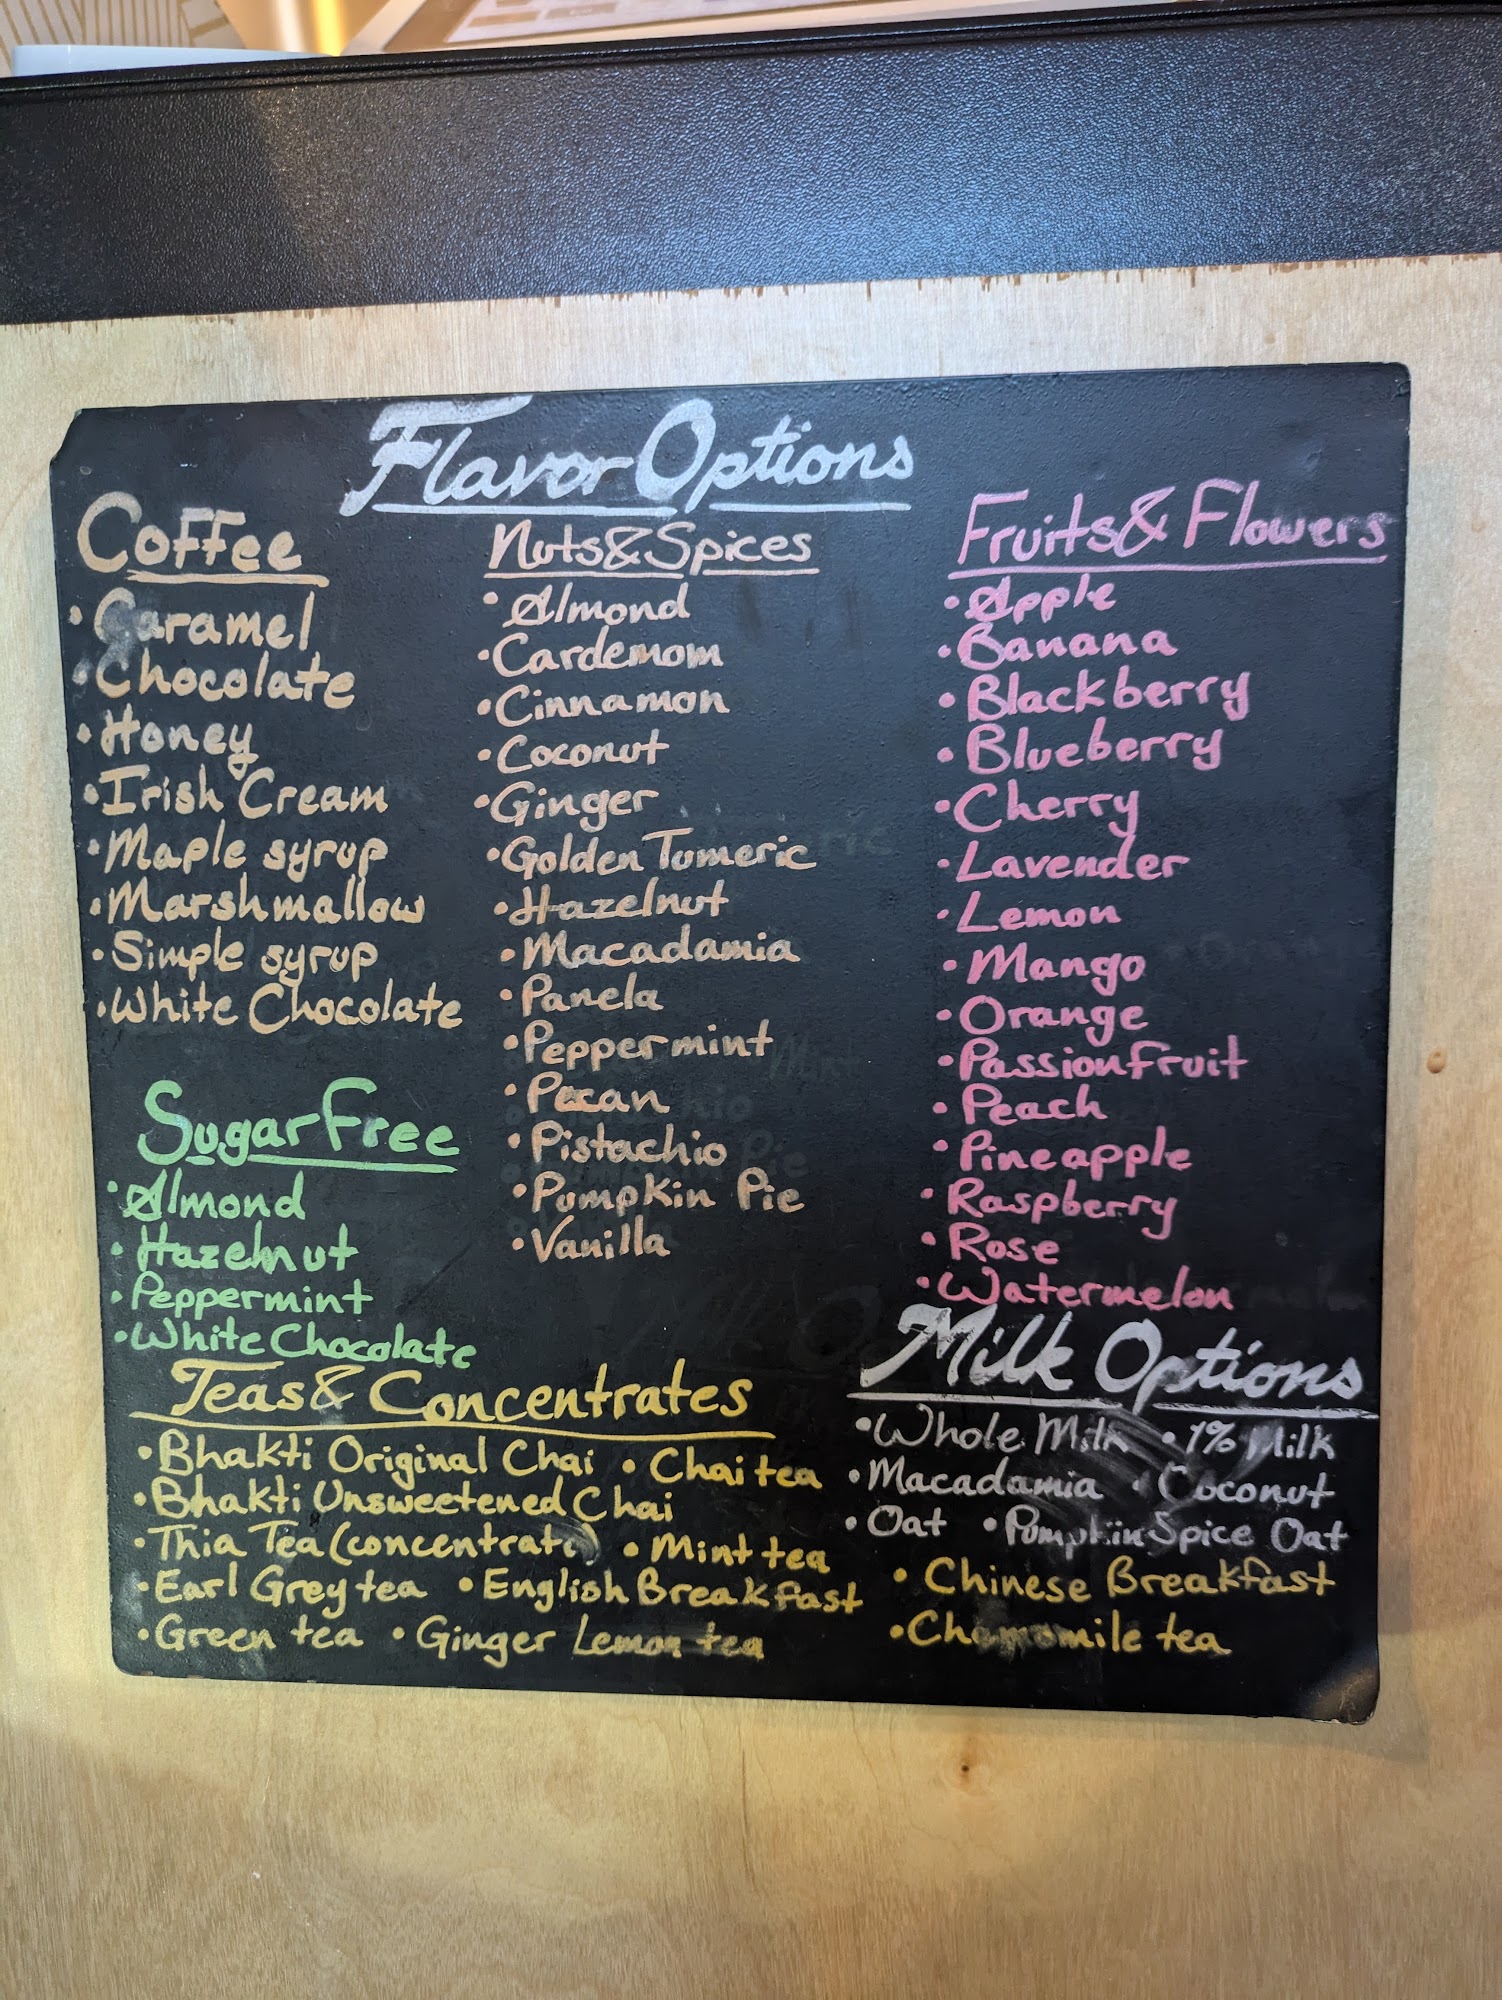 Flavor Options
Coffee
• Caramel
• Chocolate
• Honey
• Irish Cream
• Maple syrup
• Marshmallow
• Simple syrup
• White Chocolate
Sugar Free
• Almond
• Hazelnut
• Peppermint
• White Chocolate
Nuts & Spices
• Almond
• Cardemom
• Cinnamon
• Coconut
• Ginger
• Golden Tumeric
• Hazelnut
• Macadamia
• Panela
• Peppermint
• Pecan
• Pistachio
• Pumpkin Pie
• Vanilla
Fruits & Flowers
• Apple
• Banana
• Blackberry
• Blueberry
• Cherry
• Lavender
• Lemon
• Mango
• Orange
• Passionfruit
• Peach
• Pineapple
• Raspberry
• Rose
• Watermelon
Teas & Concentrates
• Bhakti Original Chai • Chai tea
• Bhakti Unsweetened Chai
• Thia Tea (concentrate) • Mint tea
• Earl Grey tea • English Breakfast
• Green tea • Ginger Lemon tea
• Chinese Breakfast
• Chamomile tea
Milk Options
• Whole Milk • 1% Milk
• Macadamia • Coconut
• Oat • Pumpkin Spice Oat